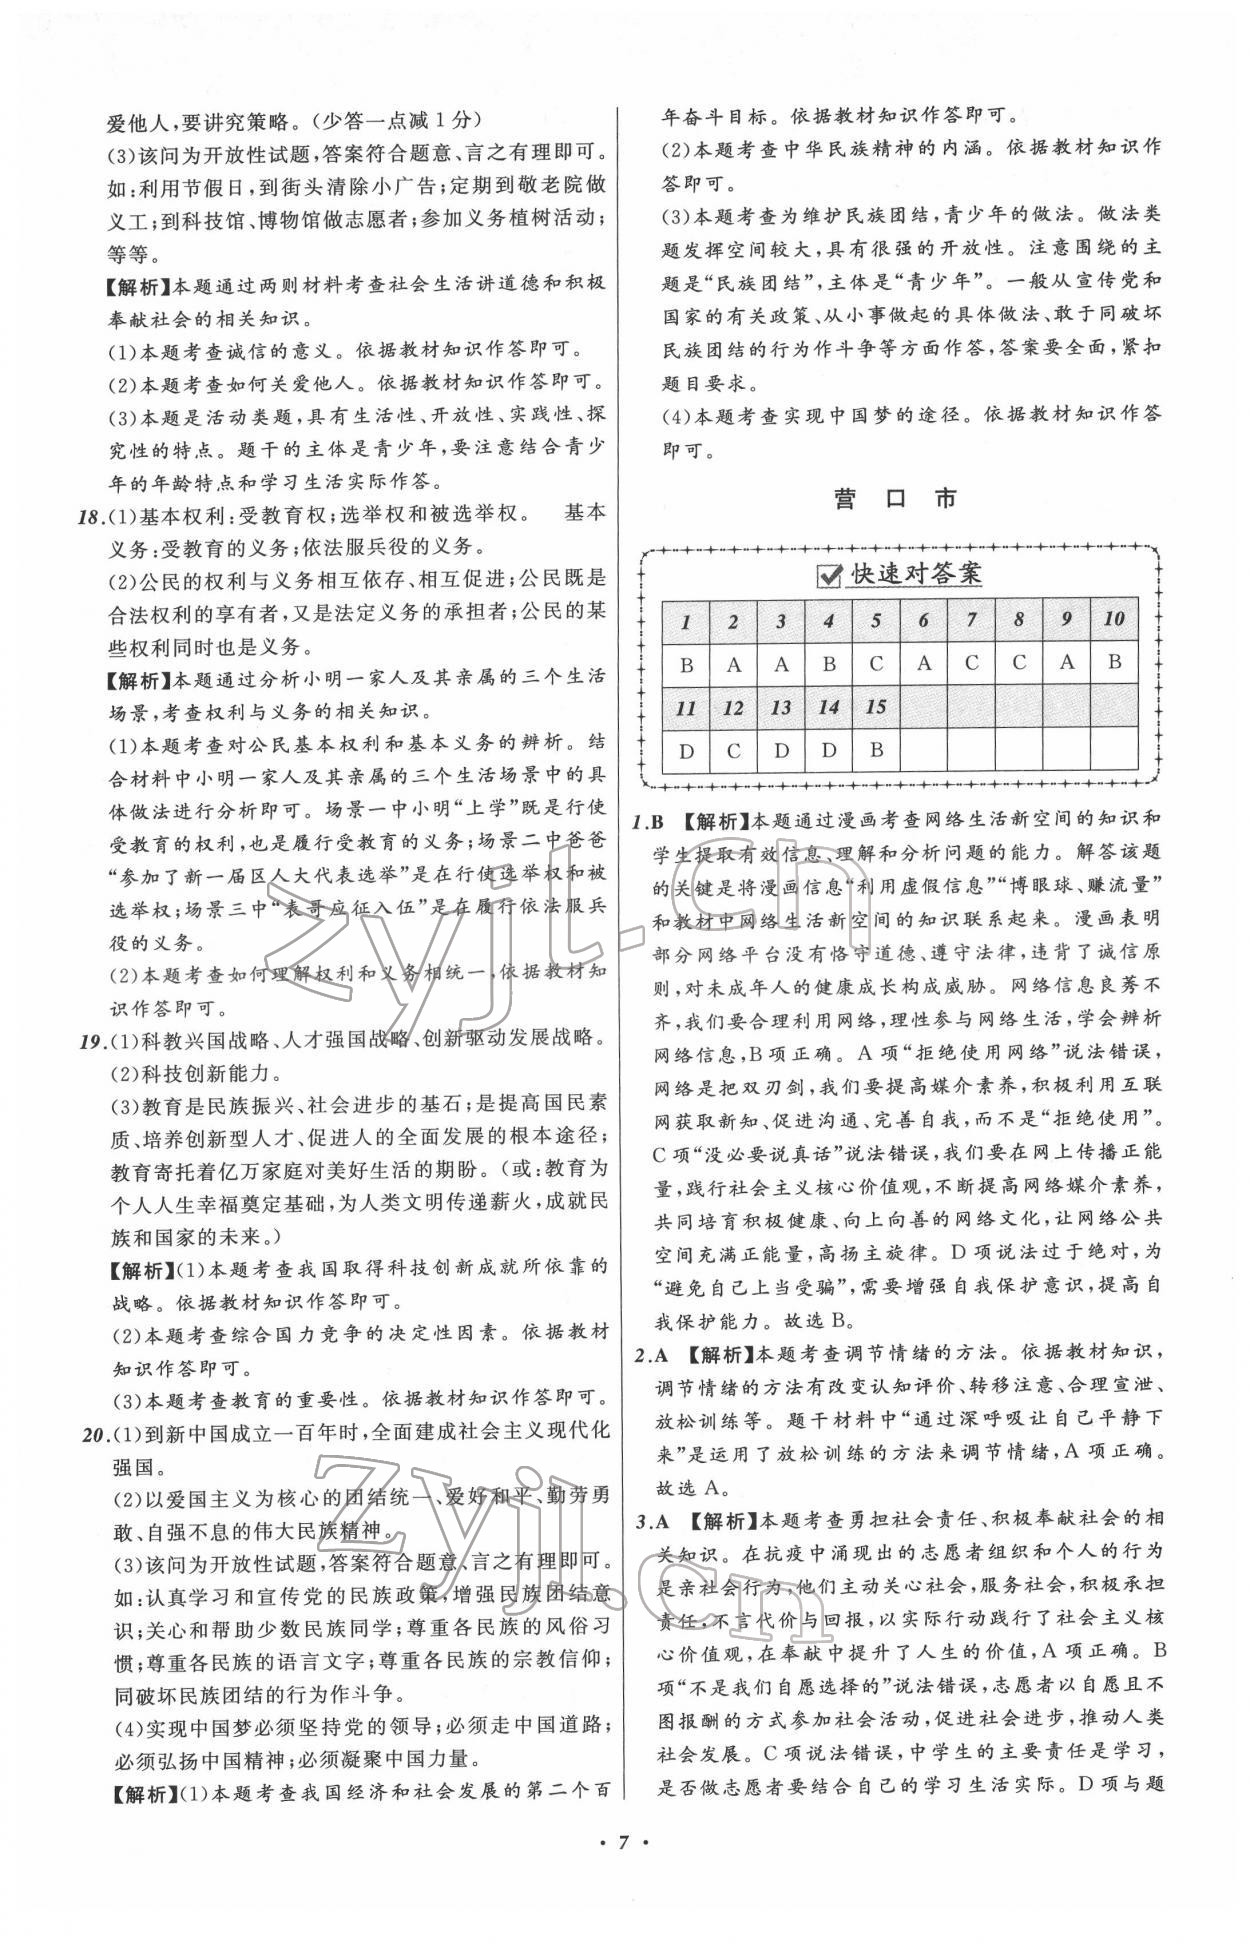 爱他人,要讲究策略。(少答一点减1分)
(3)该问为开放性试题,答案符合题意、言之有理即可。
如:利用节假日,到街头清除小广告;定期到敬老院做
义工;到科技馆、博物馆做志愿者;参加义务植树活动;
等等。
【解析】本题通过两则材料考查社会生活讲道德和积极
奉献社会的相关知识。
(1)本题考查诚信的意义。依据教材知识作答即可。
(2)本题考查如何关爱他人。依据教材知识作答即可。
(3)本题是活动类题,具有生活性、开放性、实践性、探
究性的特点。题干的主体是青少年,要注意结合青少
年的年龄特点和学习生活实际作答。
18.(1)基本权利:受教育权;选举权和被选举权。 基本
义务:受教育的义务;依法服兵役的义务。
(2)公民的权利与义务相互依存、相互促进;公民既是
合法权利的享有者,又是法定义务的承担者;公民的某
些权利同时也是义务。
【解析】本题通过分析小明一家人及其亲属的三个生活
场景,考查权利与义务的相关知识。
(1)本题考查对公民基本权利和基本义务的辨析。结
合材料中小明一家人及其亲属的三个生活场景中的具
体做法进行分析即可。场景一中小明“上学”既是行使
受教育的权利,也是履行受教育的义务;场景二中爸爸
“参加了新一届区人大代表选举”是在行使选举权和被
选举权;场景三中“表哥应征入伍”是在履行依法服兵
役的义务。
(2)本题考查如何理解权利和义务相统一,依据教材知
识作答即可。
19.(1)科教兴国战略、人才强国战略、创新驱动发展战略。
(2)科技创新能力。
(3)教育是民族振兴、社会进步的基石;是提高国民素
质、培养创新型人才、促进人的全面发展的根本途径;
教育寄托着亿万家庭对美好生活的期盼。(或:教育为
个人人生幸福奠定基础,为人类文明传递薪火,成就民
族和国家的未来。)
【解析】(1)本题考查我国取得科技创新成就所依靠的
战略。依据教材知识作答即可。
(2)本题考查综合国力竞争的决定性因素。依据教材
知识作答即可。
(3)本题考查教育的重要性。依据教材知识作答即可。
20.(1)到新中国成立一百年时,全面建成社会主义现代化
强国。
(2)以爱国主义为核心的团结统一、爱好和平、勤劳勇
敢、自强不息的伟大民族精神。
(3)该问为开放性试题,答案符合题意、言之有理即可。
如:认真学习和宣传党的民族政策,增强民族团结意
识;关心和帮助少数民族同学;尊重各民族的风俗习
惯;尊重各民族的语言文字;尊重各民族的宗教信仰;
同破坏民族团结的行为作斗争。
(4)实现中国梦必须坚持党的领导;必须走中国道路;
必须弘扬中国精神;必须凝聚中国力量。
【解析】(1)本题考查我国经济和社会发展的第二个百
年奋斗目标。依据教材知识作答即可。
(2)本题考查中华民族精神的内涵。依据教材知识作
答即可。
(3)本题考查为维护民族团结,青少年的做法。做法类
题发挥空间较大,具有很强的开放性。注意围绕的主
题是“民族团结”,主体是“青少年”。一般从宣传党和
国家的有关政策、从小事做起的具体做法、敢于同破坏
民族团结的行为作斗争等方面作答,答案要全面,紧扣
题目要求。
(4)本题考查实现中国梦的途径。依据教材知识作答
即可。
营 口 市
快速对答案
1 2 3 4 5 6 7 8 9 10
B A A B C A C C A B
11 12 13 14 15
D C D D B
1.B 【解析】本题通过漫画考查网络生活新空间的知识和
学生提取有效信息、理解和分析问题的能力。解答该题
的关键是将漫画信息“利用虚假信息”“博眼球、赚流量”
和教材中网络生活新空间的知识联系起来。漫画表明
部分网络平台没有恪守道德、遵守法律,违背了诚信原
则,对未成年人的健康成长构成威胁。网络信息良莠不
齐,我们要合理利用网络,理性参与网络生活,学会辨析
网络信息,B项正确。A项“拒绝使用网络”说法错误,
网络是把双刃剑,我们要提高媒介素养,积极利用互联
网获取新知、促进沟通、完善自我,而不是“拒绝使用”。
C项“没必要说真话”说法错误,我们要在网上传播正能
量,践行社会主义核心价值观,不断提高网络媒介素养,
共同培育积极健康、向上向善的网络文化,让网络公共
空间充满正能量,高扬主旋律。D项说法过于绝对,为
“避免自己上当受骗”,需要增强自我保护意识,提高自
我保护能力。故选B。
2.A 【解析】本题考查调节情绪的方法。依据教材知识,
调节情绪的方法有改变认知评价、转移注意、合理宣泄、
放松训练等。题干材料中“通过深呼吸让自己平静下
来”是运用了放松训练的方法来调节情绪,A项正确。
故选A。
3.A 【解析】本题考查勇担社会责任、积极奉献社会的相
关知识。在抗疫中涌现出的志愿者组织和个人的行为
是亲社会行为,他们主动关心社会,服务社会,积极承担
责任,不言代价与回报,以实际行动践行了社会主义核
心价值观,在奉献中提升了人生的价值,A项正确。B
项“不是我们自愿选择的”说法错误,志愿者以自愿且不
图报酬的方式参加社会活动,促进社会进步,推动人类
社会发展。C项说法错误,中学生的主要责任是学习,
是否做志愿者要结合自己的学习生活实际。D项与题
· 7 ·
zyjl.cn
zyjl.cn